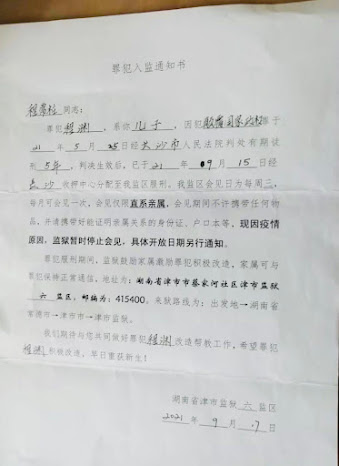 罪犯入监通知书
程 同志:
罪犯 程渊 ，系你 儿子 ，因犯 颠覆国家政权 罪于
21 年 5 月 25 日经 长沙市 人民法院判处有期徒
刑 5年 ，判决生效后，已于 21 年 09 月 15 日经
长沙 收押中心分配至我监区服刑。我监区会见日为每周三，
每月可会见一次，会见仅限直系亲属，会见期间不许携带任何物
品，并请携带好能证明亲属关系的身份证、户口本等，现因疫情
原因，监狱暂时停止会见，具体开放日期另行通知。
罪犯服刑期间，监狱鼓励家属激励罪犯积极改造，家属可与
罪犯保持正常通信，地址为：湖南省津市市蔡家河社区津市监狱
六 监区，邮编为：415400。来狱路线为：出发地→湖南省
常德市→津市市→津市监狱。
我们期待与您共同做好罪犯 程渊 改造帮教工作，希望罪犯
程渊 积极改造，早日重获新生！
湖南省津市监狱 六 监区
2021 年 9 月 17 日